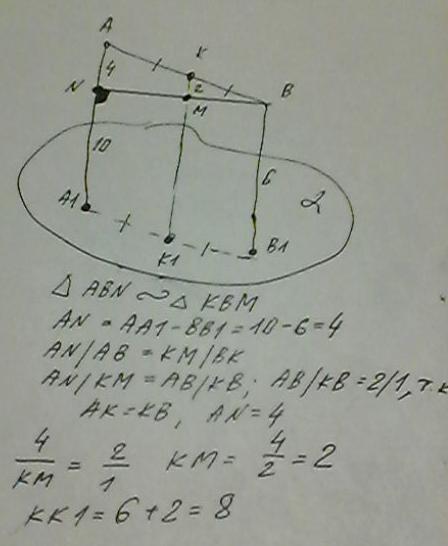 A
4
K
N
2
M
B
10
6
A1
K1
B1
α
△ ABN ∼ △ KBM
AN = AA1 - BB1 = 10 - 6 = 4
AN/AB = KM/BK
AN/KM = AB/KB; AB/KB = 2/1, т.к
AK = KB, AN = 4
4/KM = 2/1 KM = 4/2 = 2
KK1 = 6 + 2 = 8